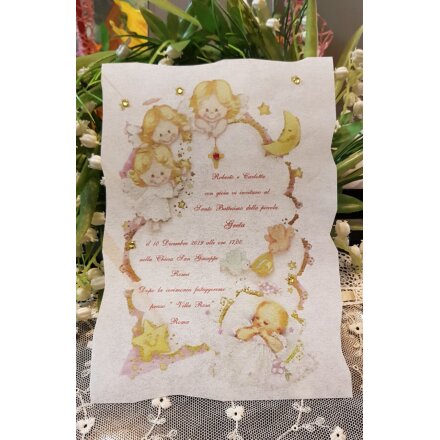 Roberto e Carlotta
con gioia vi invitano al
Santo Battesimo della piccola
Greta
il 10 Dicembre 2019 alle ore 17,00
nella Chiesa San Giuseppe
Roma
Dopo la cerimonia festeggeremo
presso "Villa Rosa"
Roma